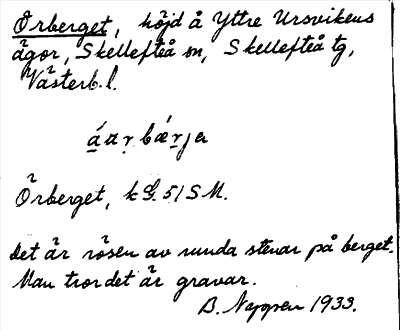 Örberget, höjd å Yttre Ursvikens
ägor, Skellefteå sn, Skellefteå tg,
Västerb. l.
Örberget, k G. 51 SM.
Det är rösen av runda stenar på berget.
Man tror det är gravar.
B. Nygren 1933.